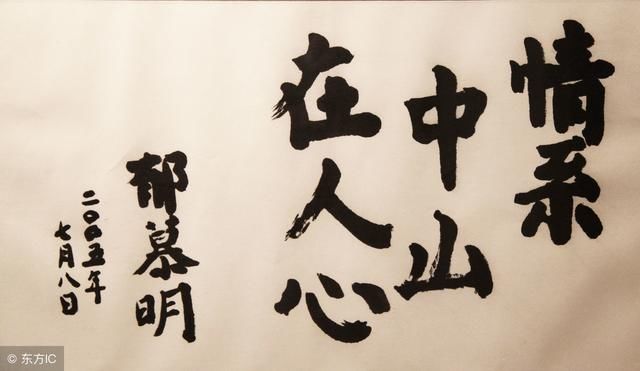 情系
中山
在人心
郁慕明
二〇〇五年
七月八日
© 东方IC